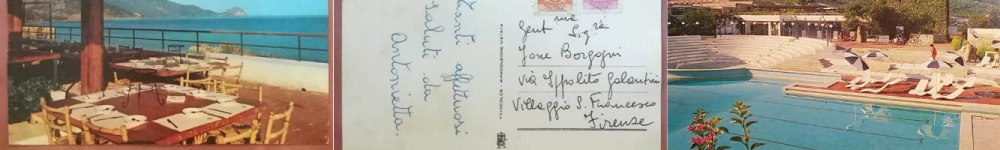 Tanti affettuosi
saluti da
Antonietta.
Gent.ma Sig.ra
Jone Borgogni
via Ippolito Galantini
Villaggio S. Francesco
Firenze